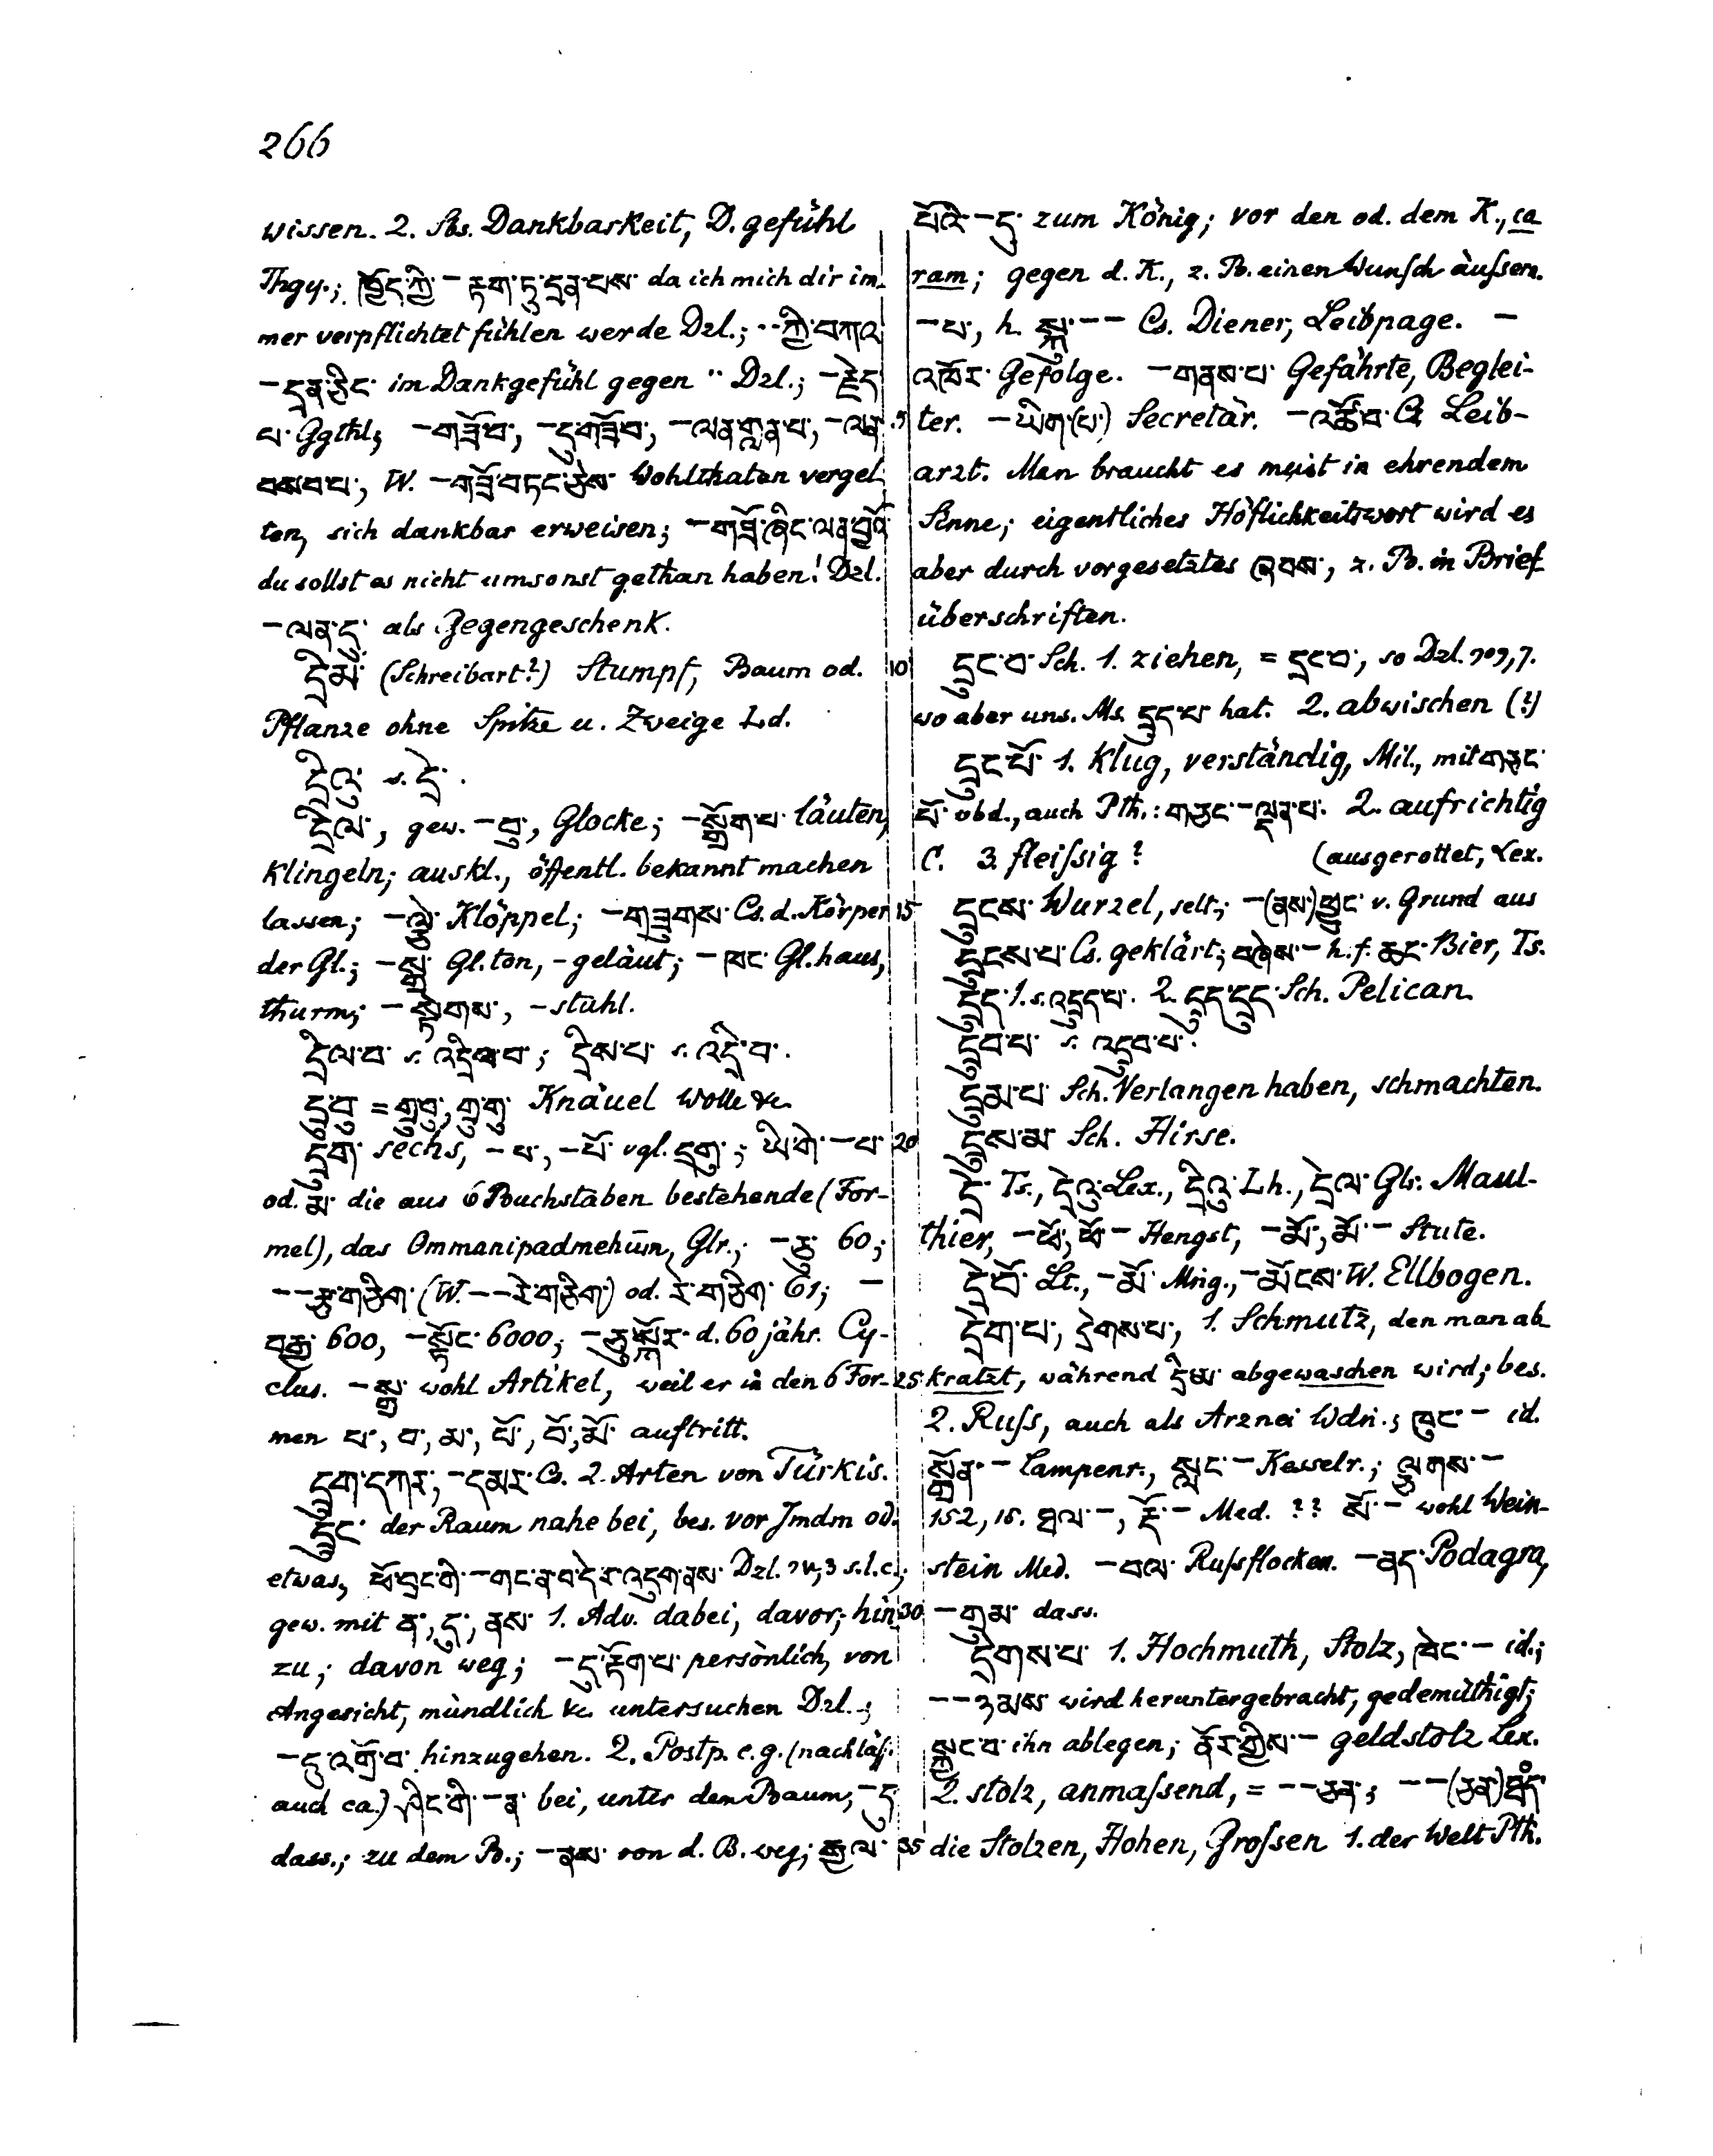 266
wissen. 2. Sbs. Dankbarkeit, D. gefühl
Thgy.; ཁྱོད་ཀྱི་ – རྟག་ཏུ་དྲན་པས་ da ich mich dir im-
mer verpflichtet fühlen werde Dzl.; ··ཀྱི་བཀའ་
– དྲན་ཅིང་ im Dankgefühl gegen " Dzl.; –
པ་ –གཟོ་བ་, –དུ་གཟོ་བ་, –ལན་གླན་པ་, –ལན་ 5
བསབ་པ་, W. –གཟོ་བཏང་ཅེས་ Wohlthaten vergel-
ten, sich dankbar erweisen; –
du sollst es nicht umsonst gethan haben! Dzl.
–ལན་དུ་ als Gegengeschenk.
(Schreibart?) Stumpf, Baum od. 10
Pflanze ohne Spitze u. Zweige Ld.
དྲིའུ་ s. དྲེ་.
དྲིལ་, gew. –བུ་, Glocke; –སྒྲོག་པ་ läuten,
klingeln; auskl., öffentl. bekannt machen
lassen; –ལྕེ་ Klöppel; –གཟུགས་ Cs. d. Körper 15
der Gl.; –སྒྲ་ Gl. ton, -geläut; –ཁང་ Gl. haus,
thurm; –སྟེགས་, -stuhl.
དྲིལ་བ་ s. འདྲིལ་བ་; དྲིས་པ་ s. འདྲི་བ་.
དྲུ་བུ་ = གྲུ་བུ་, གྲུ་གུ་ Knäuel Wolle &c.
དྲུག་ sechs, –པ་, –པོ་ vgl. དགུ་; ཡི་གེ་ –པ་ 20
od. མ་ die aus 6 Buchstaben bestehende (For-
mel), das Ommanipadmehūm, Glr.; –ཅུ་ 60;
– –རྩ་གཅིག་ (W. – –རེ་གཅིག་) od. རེ་གཅིག་ 61; –
བརྒྱ་ 600, –སྟོང་ 6000; –ཅུ་སྐོར་ d. 60 jähr. Cy-
clus. –སྒྲ་ wohl Artikel, weil er in den 6 For- 25
men པ་, བ་, མ་, པོ་, བོ་, མོ་ auftritt.
དྲུག་དཀར་, –དམར་ Cs. 2. Arten von Türkis.
དྲུང་ der Raum nahe bei, bes. vor Jmdm od.
etwas, ཕོ་བྲང་གི་ –གང་ན་བ་དེར་འདུག་ནས་ Dzl. ༢༤, 3 s.l.c.;
gew. mit ན་, དུ་, ནས་ 1. Adv. dabei, davor; hin- 30
zu; davon weg; –དུ་རྟོག་པ་ persönlich, von
Angesicht, mündlich &c. untersuchen Dzl.;
–དུ་འགྲོ་བ་ hinzugehen. 2. Postp. c.g. (nachläß.
auch ca.) ཤིང་གི་ –ན་ bei, unter dem Baum, –དུ་
dass.; zu dem B.; –ནས་ von d. B. weg; རྒྱལ་ 35
པོའི་ –དུ་ zum König; vor den od. dem K., ca
ram; gegen d. K., z. B. einen Wunsch äußern.
–པ་, h. སྐུ་ – – Cs. Diener, Leibpage. –
འཁོར་ Gefolge. –གནས་པ་ Gefährte, Beglei-
ter. –ཡིག་(པ་) Secretär. –འཚོ་བ་ Cs. Leib-
arzt. Man braucht es meist in ehrendem
Sinne; eigentliches Höflichkeitswort wird es
aber durch vorgesetztes ཞབས་, z. B. in Brief-
überschriften.
དྲུང་བ་ Sch. 1. ziehen, = དྲང་བ་, so Dzl. ༡༠༡, 7.
wo aber uns. Ms. དྲུད་པ་ hat. 2. abwischen (?)
དྲུང་པོ་ 1. klug, verständig, Mil., mit གཅང་
པོ་ vbd., auch Pth.: གཅང་ –ལྡན་པ་. 2. aufrichtig
C. 3. fleißig? (ausgerottet, Lex.
དྲུངས་ Wurzel, selt.; –(ནས་)ཕྱུང་ v. Grund aus
དྲུངས་པ་ Cs. geklärt; བཞེས་ – h. f. ཆང་ Bier, Ts.
དྲུད་ 1. s. འདྲུད་པ་. 2. དྲུད་དྲུད་ Sch. Pelican.
དྲུབ་པ་ s. འདྲུབ་པ་.
དྲུམ་པ་ Sch. Verlangen haben, schmachten.
དྲུས་མ་ Sch. Hirse.
དྲེ་ Ts., དྲེའུ་ Lex., དྲིའུ་ Lh., དྲེལ་ Glr. Maul-
thier, –ཕོ་, ཕོ་ – Hengst, –མོ་, མོ་ – Stute.
དྲེ་བོ་ Lt., –མོ་ Mng., –མོངས་ W. Ellbogen.
དྲེག་པ་, དྲེགས་པ་, 1. Schmutz, den man ab-
kratzt, während དྲིམ་ abgewaschen wird; bes.
2. Ruß, auch als Arznei Wdn.; ཁུང་ – id.
སྒྲོན་ – Lampenr., སླང་ – Kesselr.; ལྕགས་ –
152, 15. ཐལ་ –, རྡོ་ – Med. ?? སོ་ – wohl Wein-
stein Med. –བལ་ Rußflocken. –ནད་ Podagra,
–གྲུམ་ dass.
དྲེགས་པ་ 1. Hochmuth, Stolz, ཁེང་ – id.;
– – ཉམས་ wird heruntergebracht, gedemüthigt;
སྐྱུང་བ་ ihn ablegen; ནོར་གྱིས་ – geldstolz Lex.
2. stolz, anmaßend, = – –ཅན་; – –(ཅན་)
die Stolzen, Hohen, Großen 1. der Welt Pth.